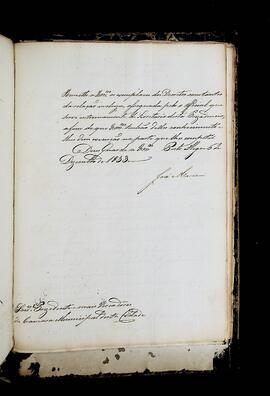 Remetto a VSas os exemplares dos Decretos constantes
da relação inclusa, assignada pelo official que
serve interinamente de Secretario desta Provincia,
a fim de que VSas tenhão delles conhecimento e
lhes dem execução na parte que lhes compete.
Deos Guarde a VSas Porto Alegre 5 de
Dezembro de 1833.
José
Snres Presidente e mais Vereadores
da Camara Municipal desta Cidade